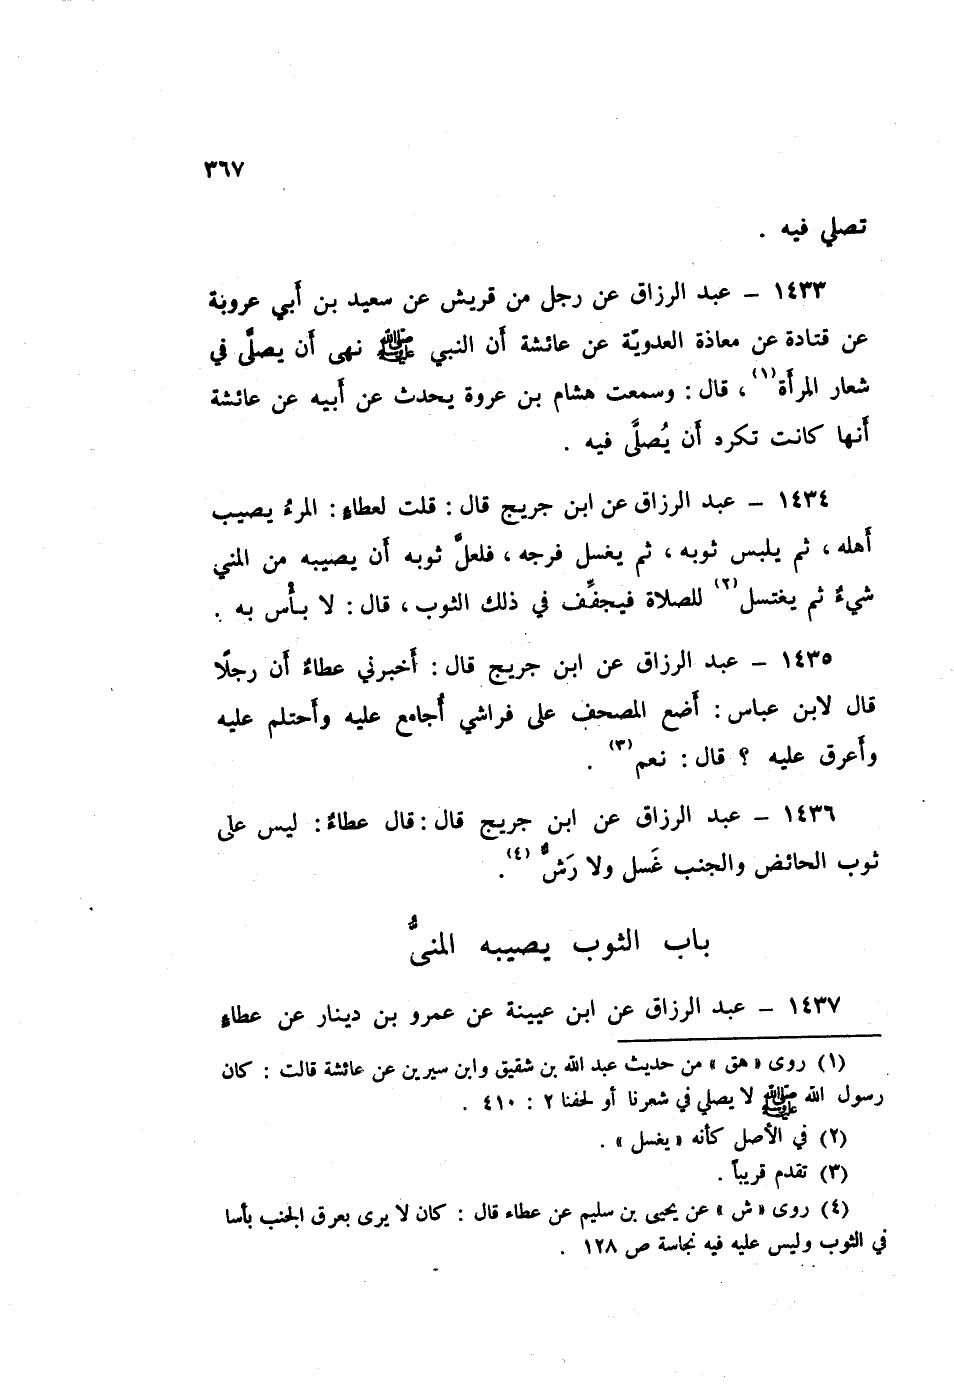 ٣٦٧
تصلي فيه .
١٤٣٣ – عبد الرزاق عن رجل من قريش عن سعيد بن أبي عروبة
عن قتادة عن معاذة العدويّة عن عائشة أن النبي ﷺ نهى أن يصلَّى في
شعار المرأة(١) ، قال : وسمعت هشام بن عروة يحدث عن أبيه عن عائشة
أنها كانت تكره أن يُصلَّى فيه .
١٤٣٤ – عبد الرزاق عن ابن جريج قال : قلت لعطاءٍ : المرءُ يصيب
أهله ، ثم يلبس ثوبه ، ثم يغسل فرجه ، فلعلَّ ثوبه أن يصيبه من المني
شيءٌ ثم يغتسل(٢) للصلاة فيجفِّف في ذلك الثوب ، قال : لا بأْس به .
١٤٣٥ – عبد الرزاق عن ابن جريج قال : أخبرني عطاءٌ أن رجلًا
قال لابن عباس : أضع المصحف على فراشي أُجامع عليه وأحتلم عليه
وأعرق عليه ؟ قال : نعم(٣) .
١٤٣٦ – عبد الرزاق عن ابن جريج قال : قال عطاءٌ : ليس على
ثوب الحائض والجنب غَسل ولا رَشٌّ(٤) .
باب الثوب يصيبه المنيُّ
١٤٣٧ – عبد الرزاق عن ابن عيينة عن عمرو بن دينار عن عطاءٍ
(١) روى « هق » من حديث عبد الله بن شقيق وابن سيرين عن عائشة قالت : كان
رسول الله ﷺ لا يصلي في شعرنا أو لحفنا ٢ : ٤١٠ .
(٢) في الأصل كأنه « يغسل » .
(٣) تقدم قريباً .
(٤) روى « ش » عن يحيى بن سليم عن عطاء قال : كان لا يرى بعرق الجنب بأسا
في الثوب وليس عليه فيه نجاسة ص ١٢٨ .